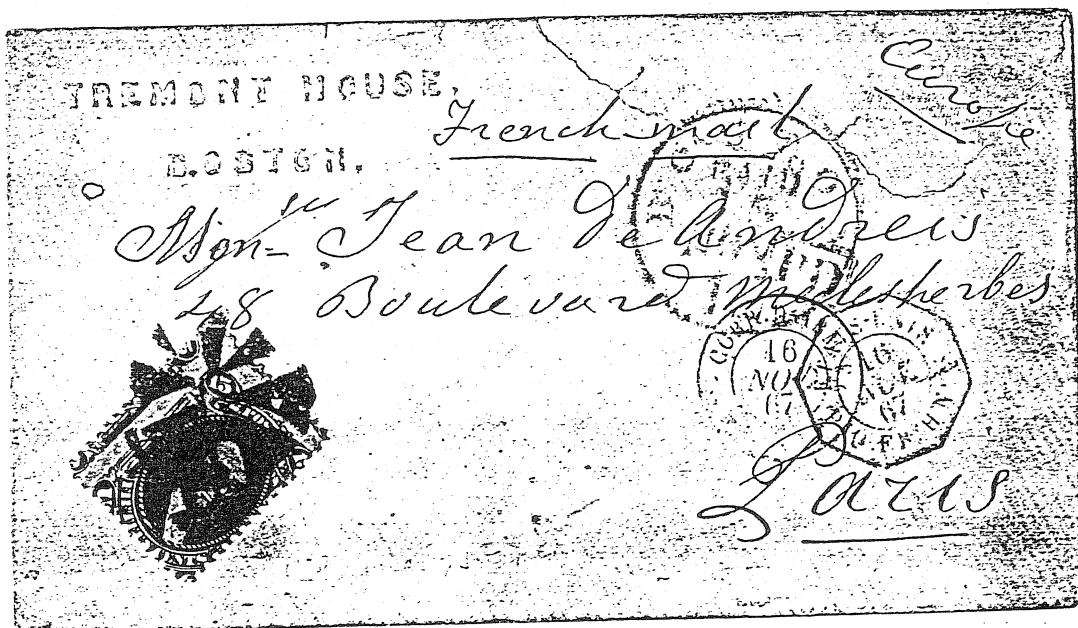 TREMONT HOUSE.
BOSTON.
French mail
Europe
Monsr Jean De Andreis
48 Boulevard Malesherbes
Paris
16
NOV
67
16
NOV
67